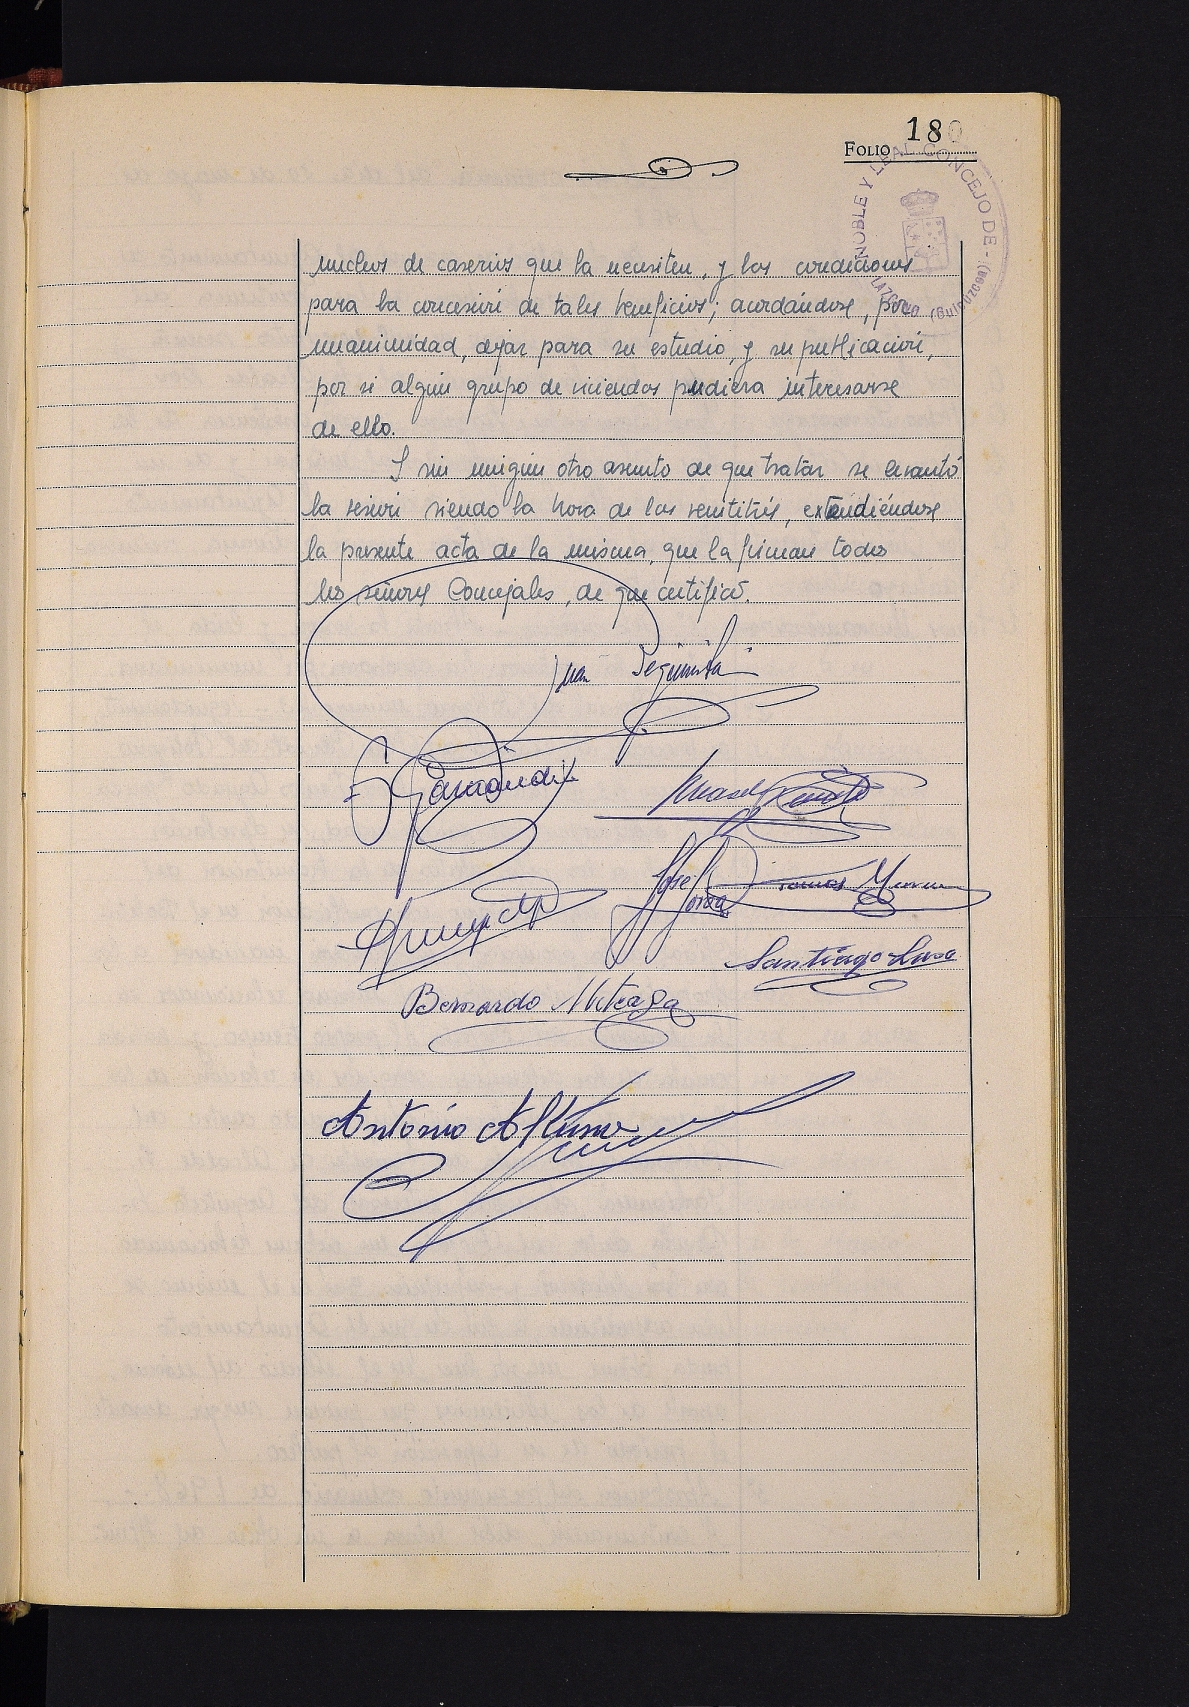 FOLIO 180
NOBLE Y LEAL CONCEJO DE - LAZCANO (Guipuzcoa)
nucleos de caserios que la necesiten, y las condiciones
para la concesión de tales beneficios; acordándose, por
unanimidad, dejar para su estudio, y su publicación,
por si algún grupo de viviendas pudiera interesarse
de ello.
Y sin ningún otro asunto de que tratar se levantó
la sesión siendo la hora de las veintitrés, extendiéndose
la presente acta de la misma, que la firman todos
los señores Concejales, de que certifico.
Juan
Garmendia
Manuel
José
Tomas
Santiago Lasa
Bernardo Muteaga
Antonio Altuna